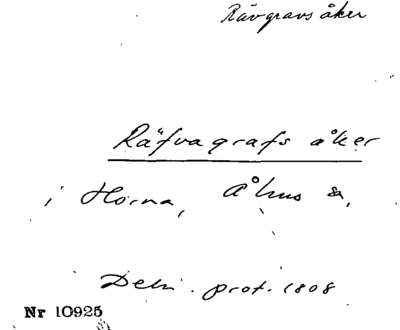 Rävgravs åker
Räfvagrafs åker
i Horna, Åhus sn,
Deln. prot. 1808
Nr 10925